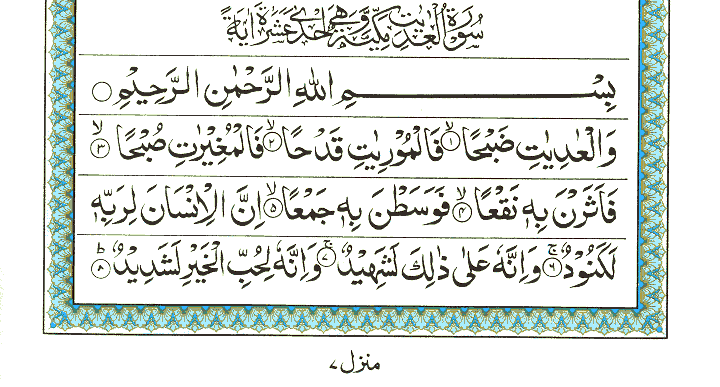 سُوْرَةُ الْعٰدِيٰتِ مَكِّيَّةٌ وَّهِيَ اِحْدٰى عَشْرَةَ اٰيَةً
بِسْمِ اللهِ الرَّحْمٰنِ الرَّحِيْمِ ○
وَالْعٰدِيٰتِ ضَبْحًا ۙ﴿۱﴾ فَالْمُوْرِيٰتِ قَدْحًا ۙ﴿۲﴾ فَالْمُغِيْرٰتِ صُبْحًا ۙ﴿۳﴾
فَاَثَرْنَ بِهٖ نَقْعًا ۙ﴿۴﴾ فَوَسَطْنَ بِهٖ جَمْعًا ۙ﴿۵﴾ اِنَّ الْاِنْسَانَ لِرَبِّهٖ
لَكَنُوْدٌ ۚ﴿۶﴾ وَاِنَّهٗ عَلٰى ذٰلِكَ لَشَهِيْدٌ ۚ﴿۷﴾ وَاِنَّهٗ لِحُبِّ الْخَيْرِ لَشَدِيْدٌ ؕ﴿۸﴾
منزل ۷